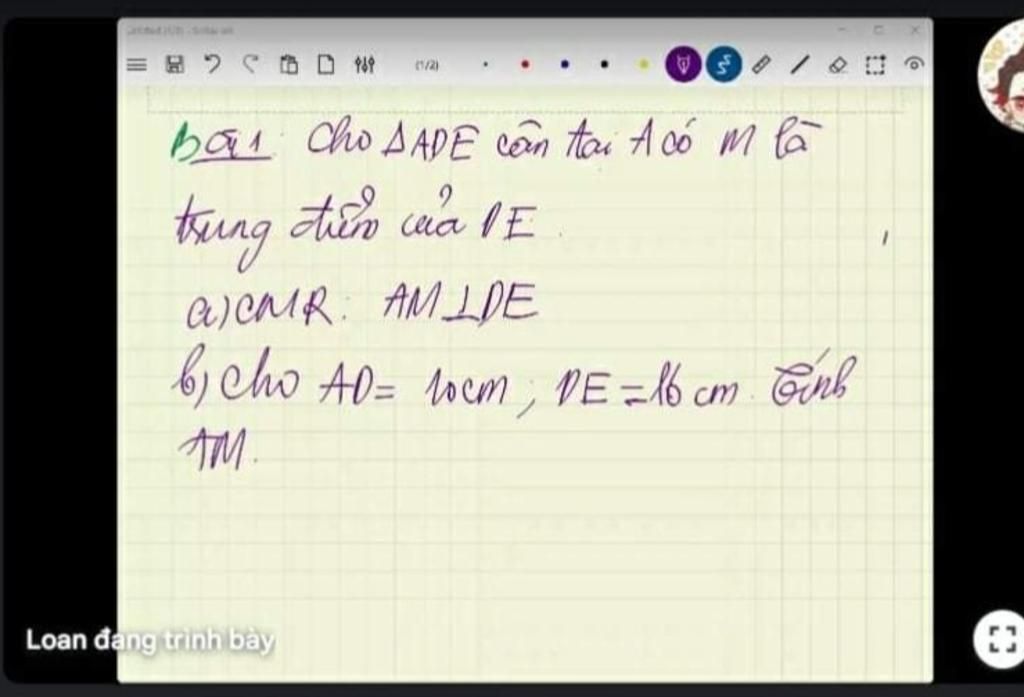 (1/2)
bài 1: Cho ΔADE cân tại A có M là
trung điểm của DE.
a) CMR: AM⊥DE
b) Cho AD = 10cm; DE = 16 cm. Tính
AM.
Loan đang trình bày